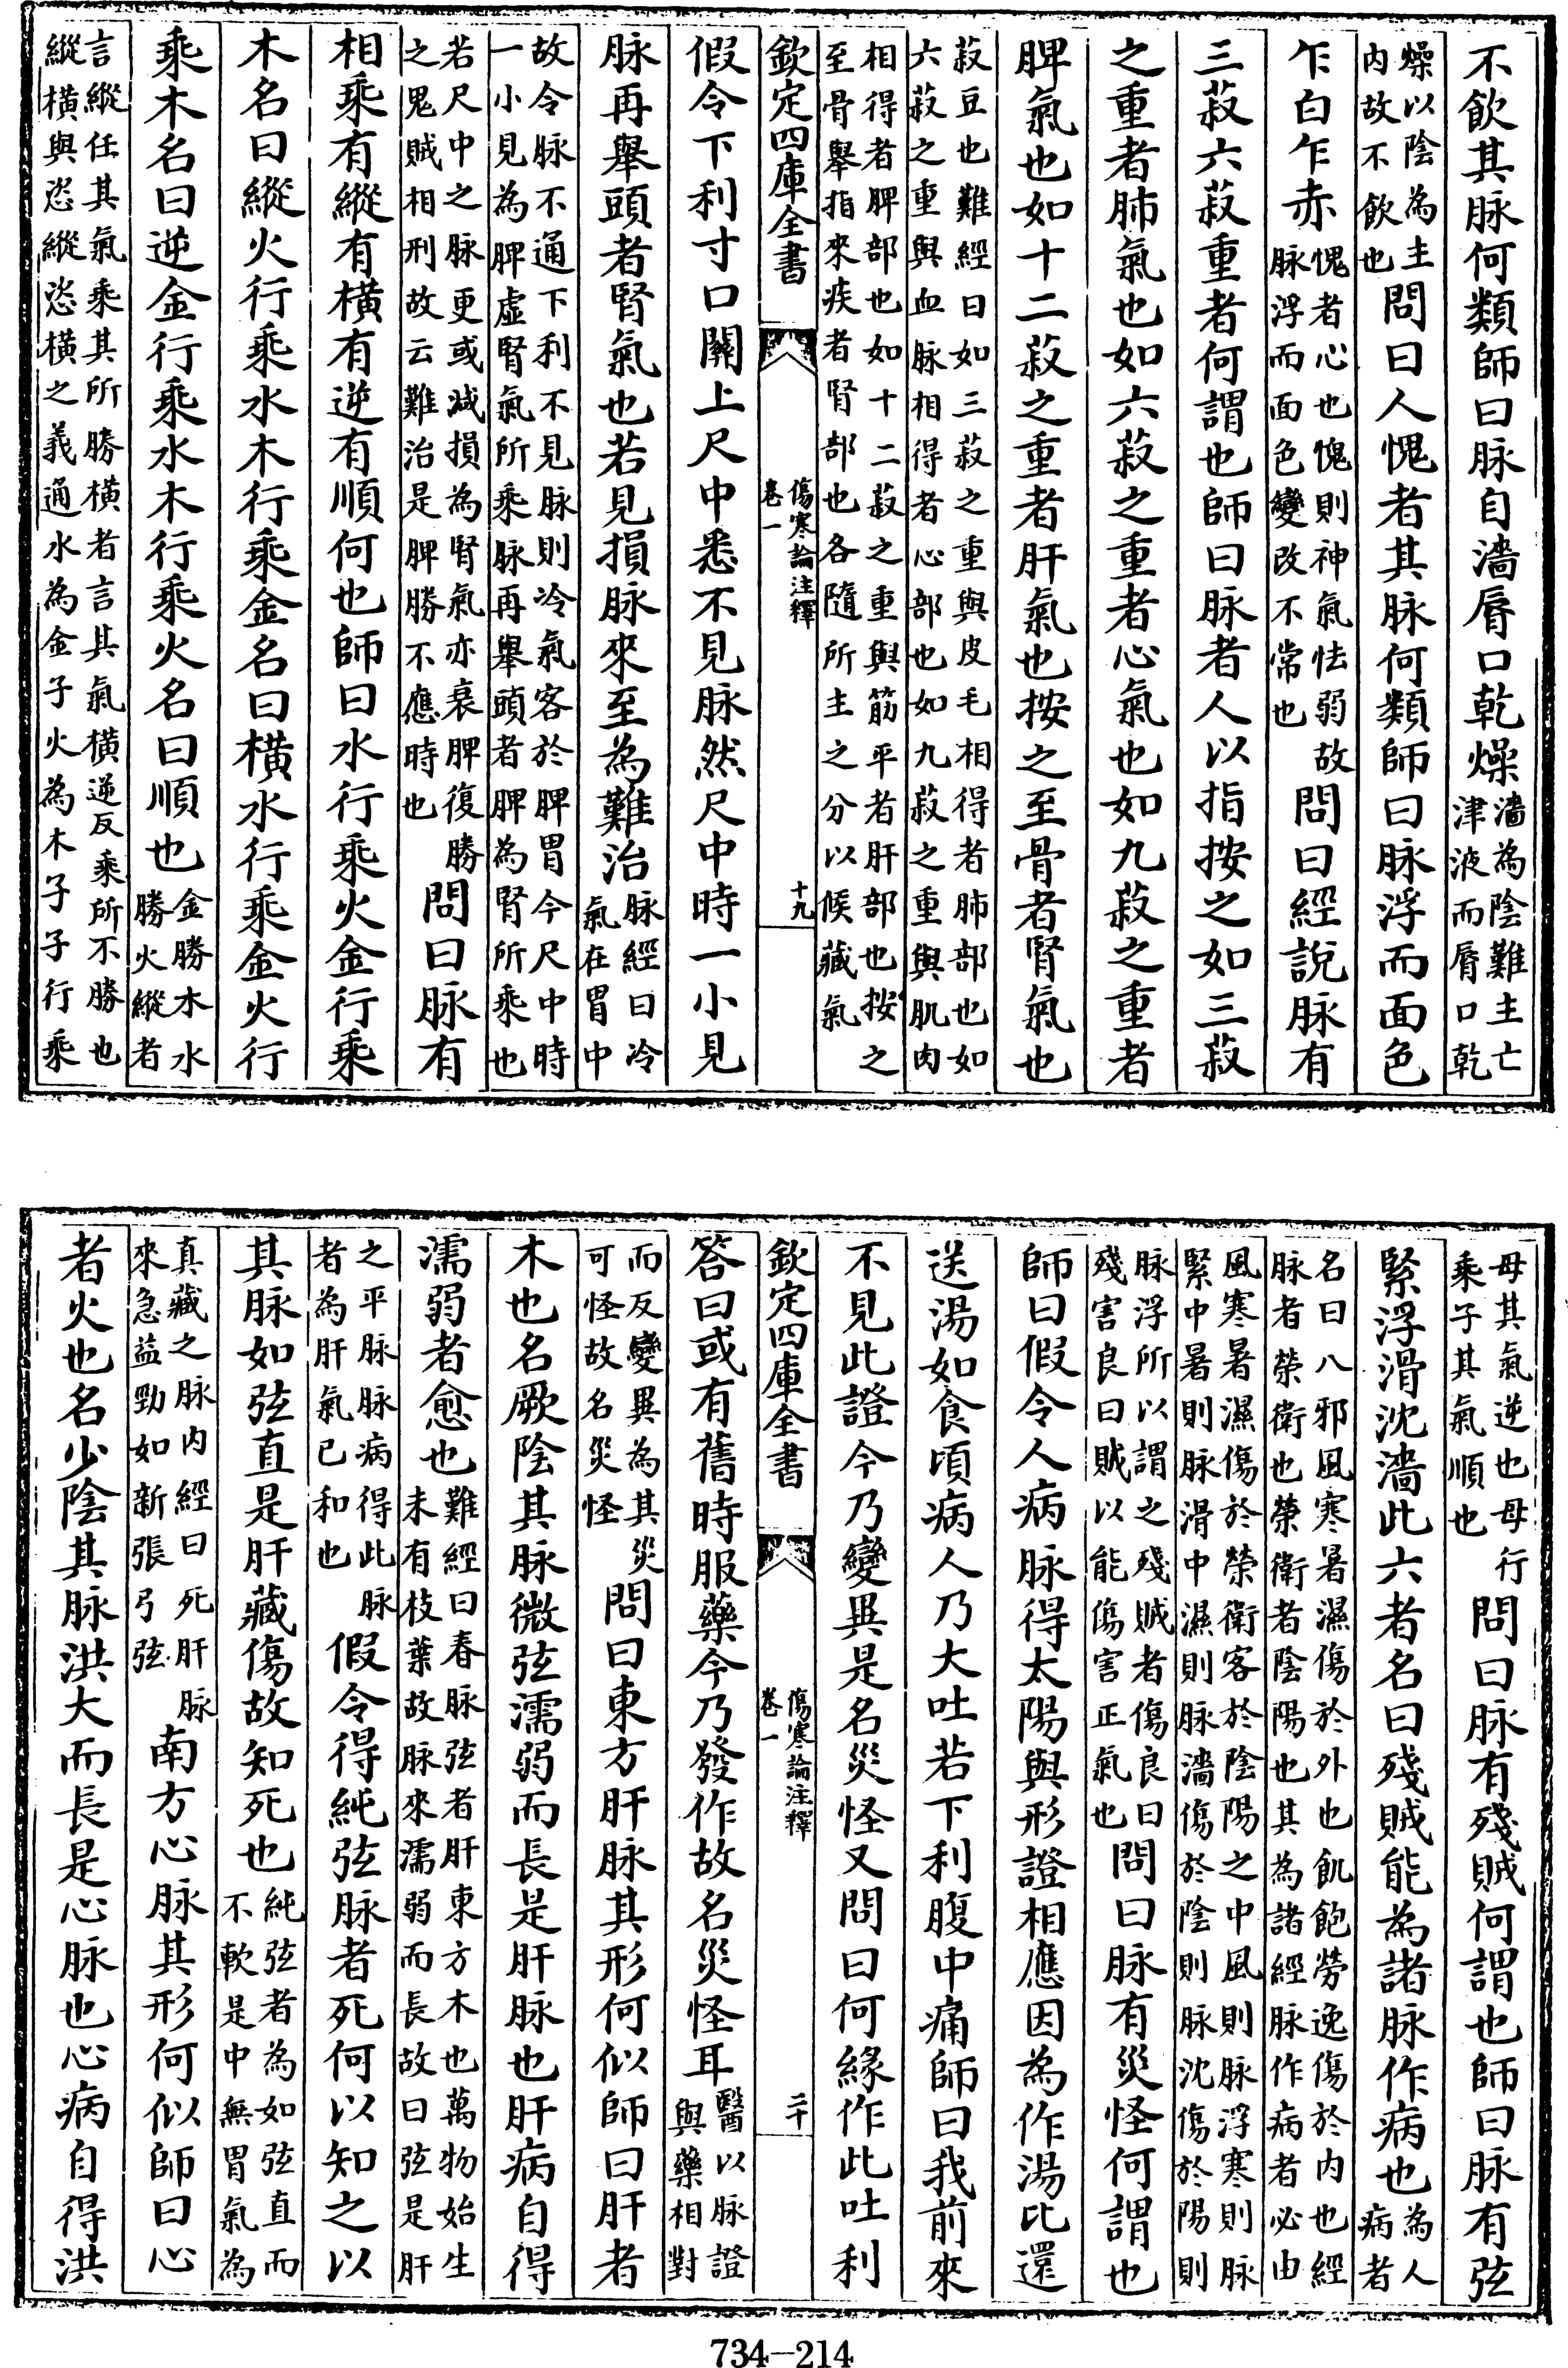 不飲其脉何類師曰脉自濇脣口乾燥濇為陰難主亡津液而脣口乾
燥以陰為主內故不飲也問曰人愧者其脉何類師曰脉浮而面色
乍白乍赤愧者心也愧則神氣怯弱故脉浮而面色變改不常也問曰經說脉有
三菽六菽重者何謂也師曰脉者人以指按之如三菽
之重者肺氣也如六菽之重者心氣也如九菽之重者
脾氣也如十二菽之重者肝氣也按之至骨者腎氣也
菽豆也難經曰如三菽之重與皮毛相得者肺部也如六菽之重與血脉相得者心部也如九菽之重與肌肉
相得者脾部也如十二菽之重與筋平者肝部也按之至骨舉指來疾者腎部也各隨所主之分以候藏氣
欽定四庫全書 傷寒論注釋 卷一 十九
假令下利寸口關上尺中悉不見脉然尺中時一小見
脉再舉頭者腎氣也若見損脉來至為難治脉經曰冷氣在胃中
故令脉不通下利不見脉則冷氣客於脾胃今尺中時一小見為脾虛腎氣所乘脉再舉頭者脾為腎所乘也
若尺中之脉更或減損為腎氣亦衰脾復勝之鬼賊相刑故云難治是脾勝不應時也問曰脉有
相乘有縱有橫有逆有順何也師曰水行乘火金行乘
木名曰縱火行乘水木行乘金名曰橫水行乘金火行
乘木名曰逆金行乘水木行乘火名曰順也金勝木水勝火縱者
言縱任其氣乘其所勝橫者言其氣橫逆反乘所不勝也縱橫與恣縱恣橫之義通水為金子火為木子子行乘
母其氣逆也母行乘子其氣順也問曰脉有殘賊何謂也師曰脉有弦
緊浮滑沈濇此六者名曰殘賊能為諸脉作病也為人病者
名曰八邪風寒暑濕傷於外也飢飽勞逸傷於內也經脉者榮衛也榮衛者陰陽也其為諸經脉作病者必由
風寒暑濕傷於榮衛客於陰陽之中風則脉浮寒則脉緊中暑則脉滑中濕則脉濇傷於陰則脉沈傷於陽則
脉浮所以謂之殘賊者傷良曰殘害良曰賊以能傷害正氣也問曰脉有災怪何謂也
師曰假令人病脉得太陽與形證相應因為作湯比還
送湯如食頃病人乃大吐若下利腹中痛師曰我前來
不見此證今乃變異是名災怪又問曰何緣作此吐利
答曰或有舊時服藥今乃發作故名災怪耳醫以脉證與藥相對
欽定四庫全書 傷寒論注釋 卷一 二十
而反變異為其災可怪故名災怪問曰東方肝脉其形何似師曰肝者
木也名厥陰其脉微弦濡弱而長是肝脉也肝病自得
濡弱者愈也難經曰春脉弦者肝東方木也萬物始生未有枝葉故脉來濡弱而長故曰弦是肝
之平脉脉病得此脉者為肝氣已和也假令得純弦脉者死何以知之以
其脉如弦直是肝藏傷故知死也純弦者為如弦直而不軟是中無胃氣為
真藏之脉內經曰死肝脉來急益勁如新張弓弦南方心脉其形何似師曰心
者火也名少陰其脉洪大而長是心脉也心病自得洪
734—214